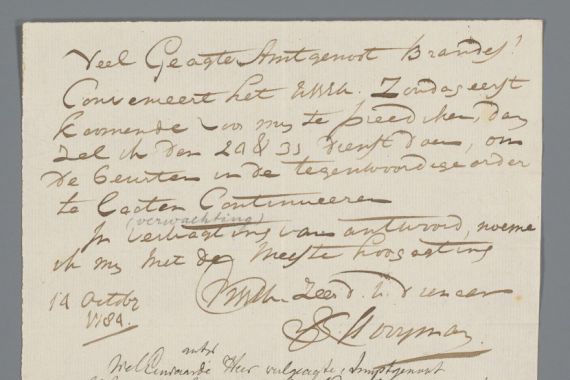 Veel Geagte Amtgenoot Brandes!
Convenieert het UWEh. Zondag eerst
koomende voor my te preediken, dan
zel ik den 24 & 31 dienst doen, om
De beurten in de tegenwoordige order
te Laaten Continueeren
(verwachting)
In verwagting van antwoord, noeme
ik my met de meeste hoogagting
UWEh. Zeer d. v. dienaar
14 Octobr
1784.
J. Hooyman
antw
WelEerwaarde Heer veelgeagte Amptgenoot